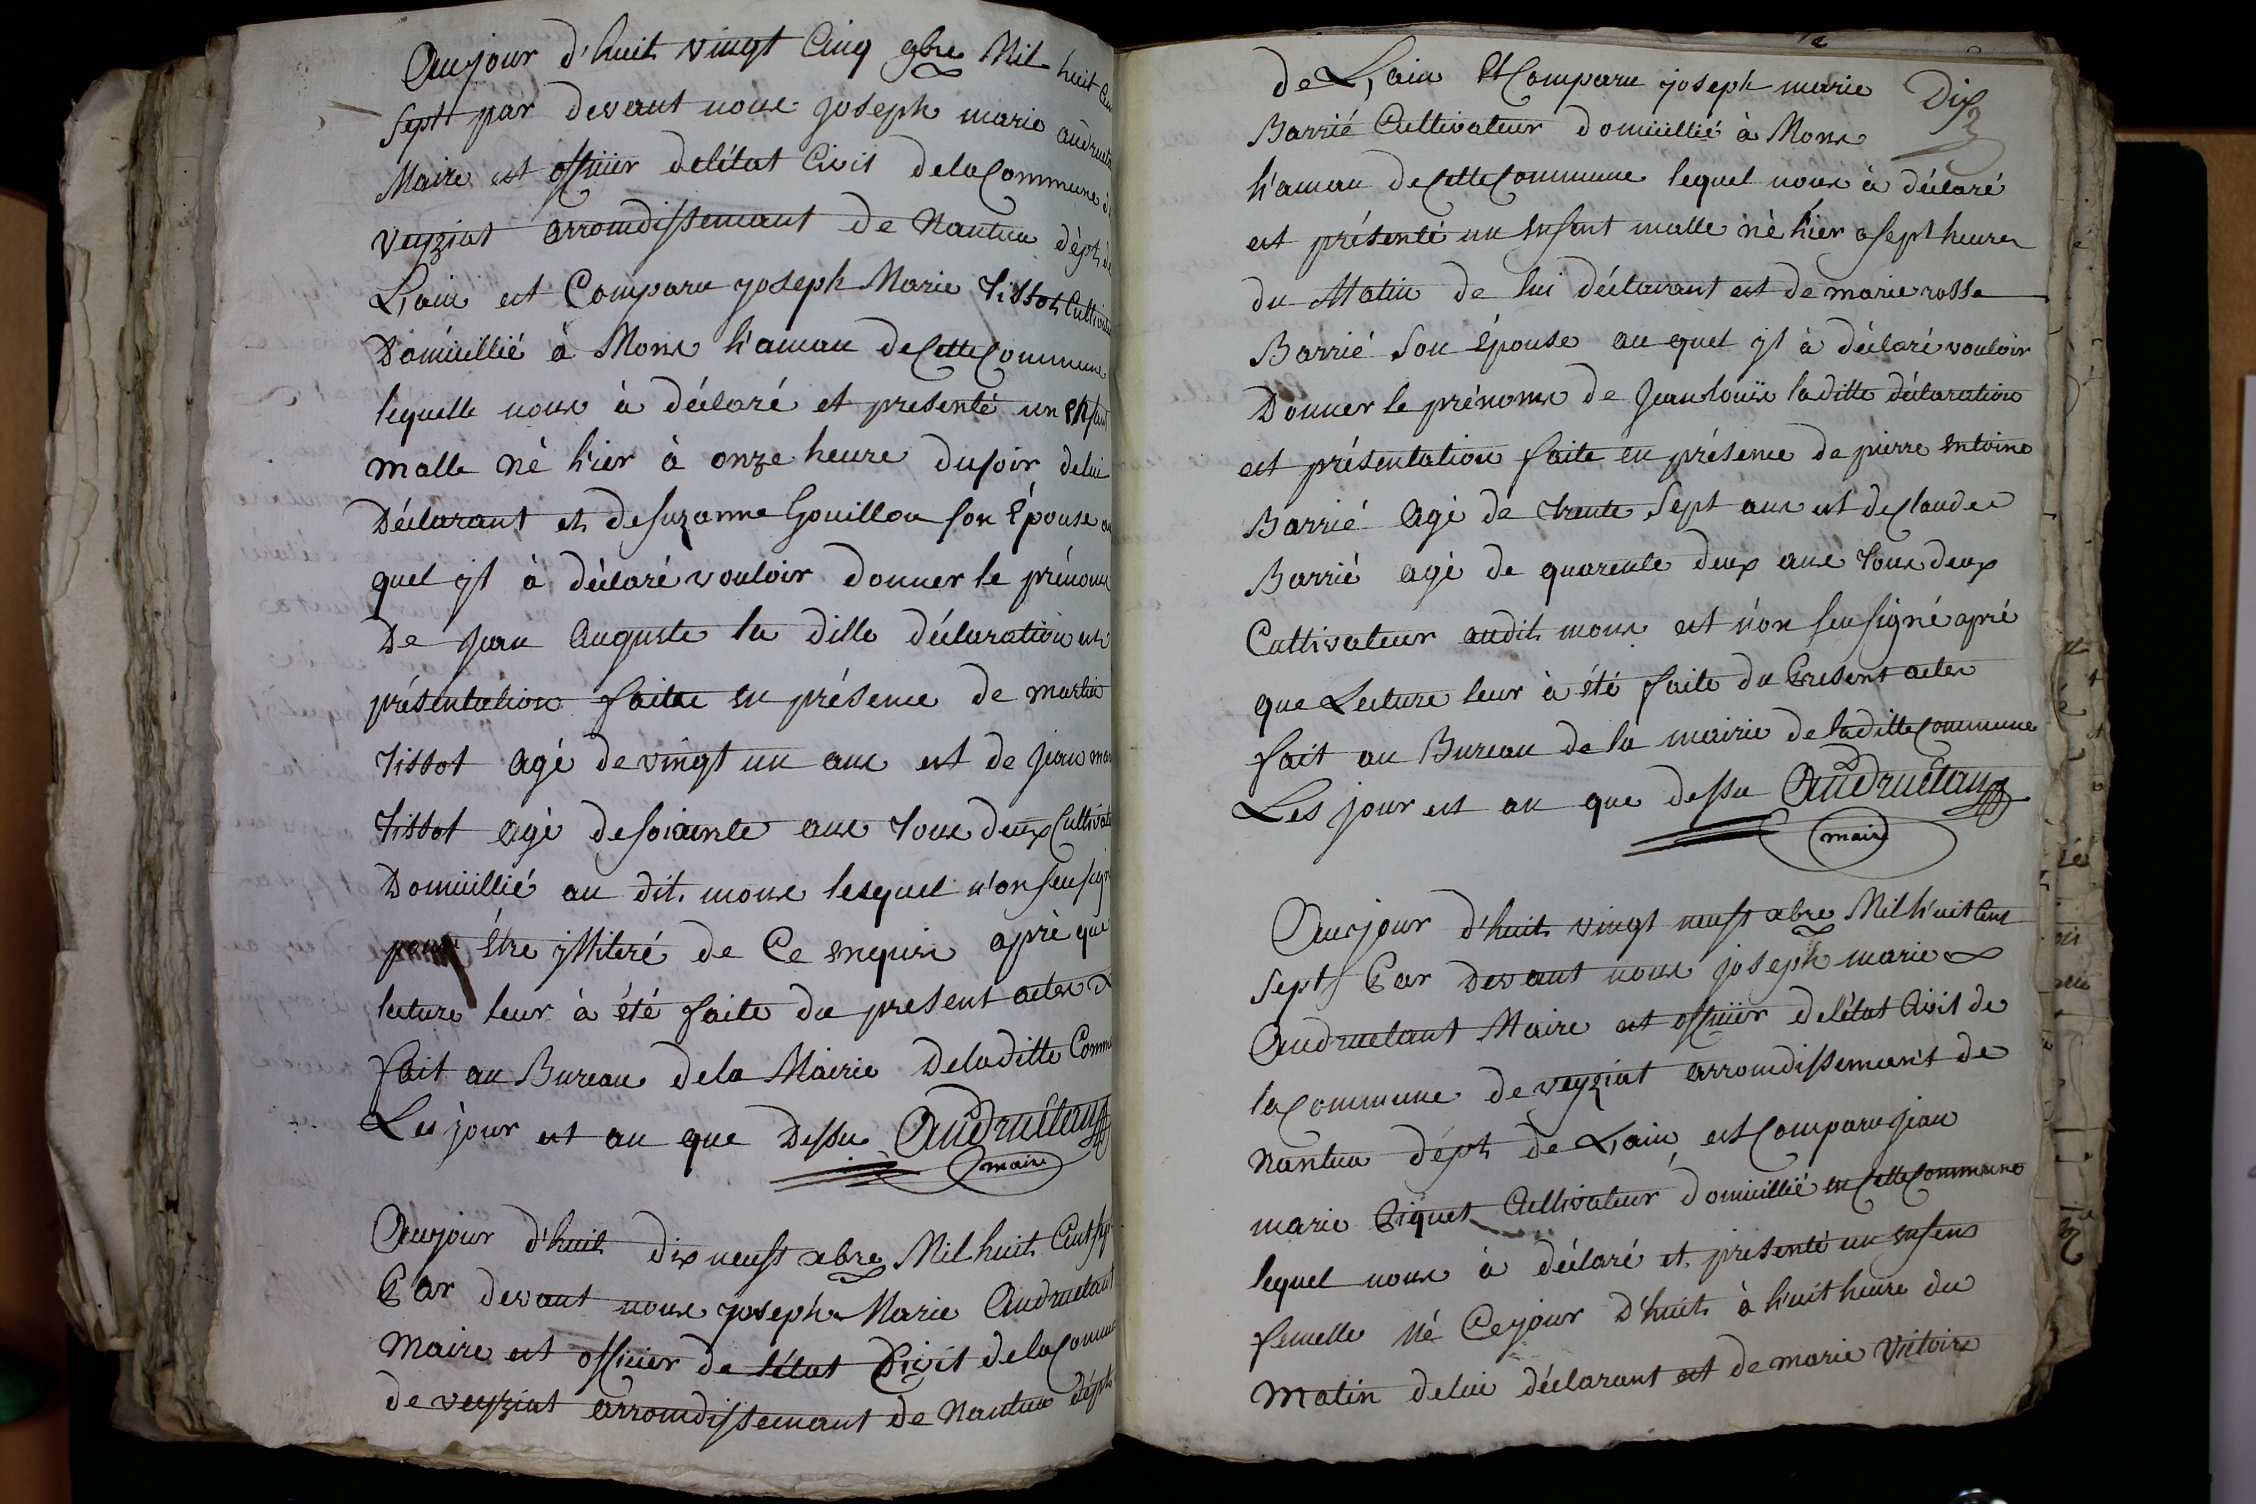 Aujour d'huit vingt Cinq 9bre Mil huit Cen
sept par devant nous joseph marie audrueta
Maire est officier deletat Civil dela Commune d
Veyziat arromdissemant de Nantua dépt d
L'ain est Comparu joseph Marie tissot Cultivat
Domicillié à Mons h'amau de Cette Commune
lequelle nous à déclaré et presenté un enfant
malle né hier à onze heure du soir de lui
Déclarant et de suzanne Gouillou son Épouse au
quel yl à déclaré vouloir donner le prénoms
De jean auguste la ditte déclaration est
présentation faitte en présence de martin
tissot agé de vingt un ans est de jean mar
tissot agé de soixante ans tous deux Cultivat
Domicillié au dit mons lesquel n'on seu signé
pour être yllitéré de Ce enquis aprè que
lecture leur à été faite du present actes
fait au Bureau dela Mairie Deladitte Commu
Les jour est an que Dessu Audruetan
maire
Aujour d'huit dix neuft xbre Mil huit Cent sep
Par devant nous joseph Marie Audruetant
Maire est officier de l'état Civil de la Commu
de veyziat arromdissemant de Nantua dépt
de L'ain Et Comparu joseph marie
Dix
Barrié Cultivateur domicillié à Mons
h'amau de Cette Commune lequel nous à déclaré
est présenté un enfent malle né hier a sept heures
du Matin de lui déclarant est de marie rosse
Barrié son Épouse au quel yl à déclaré vouloir
Donner le prénoms de Jean louis la ditte déclaration
est présentation faite en présence de pierre entoine
Barrié agé de trente sept ans est de Claudes
Barrié agé de quarente deux ans tous deux
Cultivateur audit mons est n'on seu signé apré
que Lecture leur à été faite du Present actes
fait au Bureau de la mairie de la ditte Commune
Les jour est an que dessu Audruetan
maire
Aujour d'huit vingt neuft xbre Mil huit Cent
sept Par devant nous joseph marie
Audruetant Maire est officier de létat Civil de
la Commune de veyziat arromdissemant de
Nantua dépt de L'ain est Comparu jean
marie Piquet Cultivateur domicillié en Cette Commune
lequel nous à déclaré et presenté un enfens
femelle né Ce jour D'huit à h'uit heure du
matin de lui déclarant est de marie Victoire